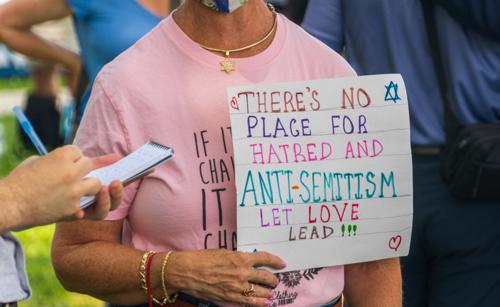 THERE'S NO
PLACE FOR
HATRED AND
ANTI-SEMITISM
LET LOVE
LEAD !!!
IF IT
CHA
IT
CHA
Clothing